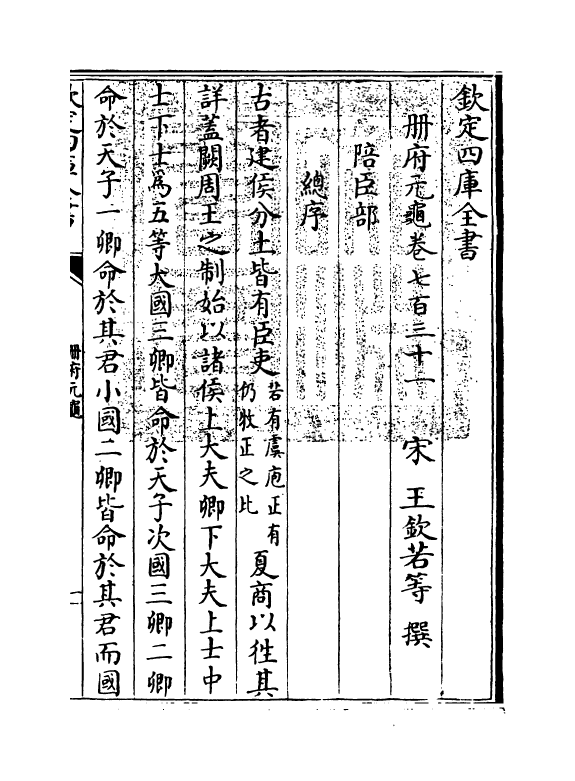 欽定四庫全書
冊府元龜卷七百三十一　宋　王欽若等　撰
陪臣部
總序
古者建侯分土皆有臣吏若有虞庖正有仍牧正之比夏商以徃其
詳蓋闕周王之制始以諸侯上大夫卿下大夫上士中
士下士爲五等大國三卿皆命於天子次國三卿二卿
命於天子一卿命於其君小國二卿皆命於其君而國
冊府元龜
一